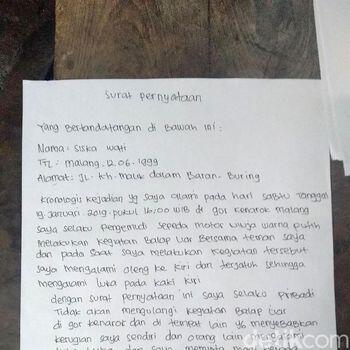 Surat pernyataan
Yang Bertandatangan di Bawah ini :
Nama : Siska Wati
TTL : malang, 12.06.1999
Alamat : JL. Kh. malik dalam Baran- Buring
Kronologi kejadian yg saya alami pada hari sabtu Tanggal
19. Januari. 2019. pukul 16:00 WIB di gor kenarok malang
saya selaku pengemudi sepeda motor warna putih
melakukan kegiatan Balap Liar Bersama teman saya
dan pada saat saya melakukan kegiatan tersebut
saya mengalami oleng ke kiri dan terjatuh sehingga
mengalami luka pada kaki kiri
dengan surat pernyataan ini saya selaku pribadi
Tidak akan mengulangi kegiatan Balap Liar
di gor kenarok dan di tempat lain yg menyebabkan
kerugian saya sendiri dan orang lain mengalami
detikcom